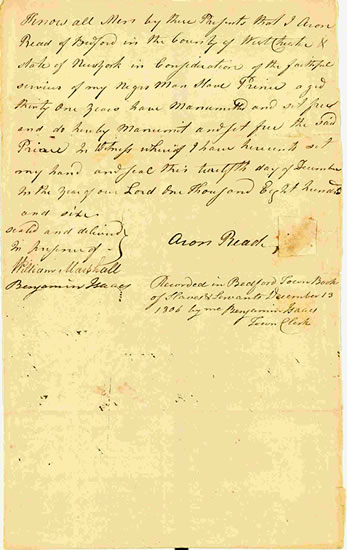 Know all Men by these Presents that I Aron
Read of Bedford in the County of West Chester &
State of Newyork in Consideration of the faithful
services of my Negro Man Slave Prince aged
thirty One Years have Manumitted and set free
and do hereby Manumit and set free the said
Prince In Witness whereof I have hereunto set
my hand and seal this twelfth day of December
in the year of our Lord One thousand Eight hundred
and six
seald and delivered
in presence of
William Marshall
Benjamin Isaacs
Aron Read
Recorded in Bedford Town Book
of Slaves & Servants December 13
1806 by me Benjamin Isaacs
Town Clerk